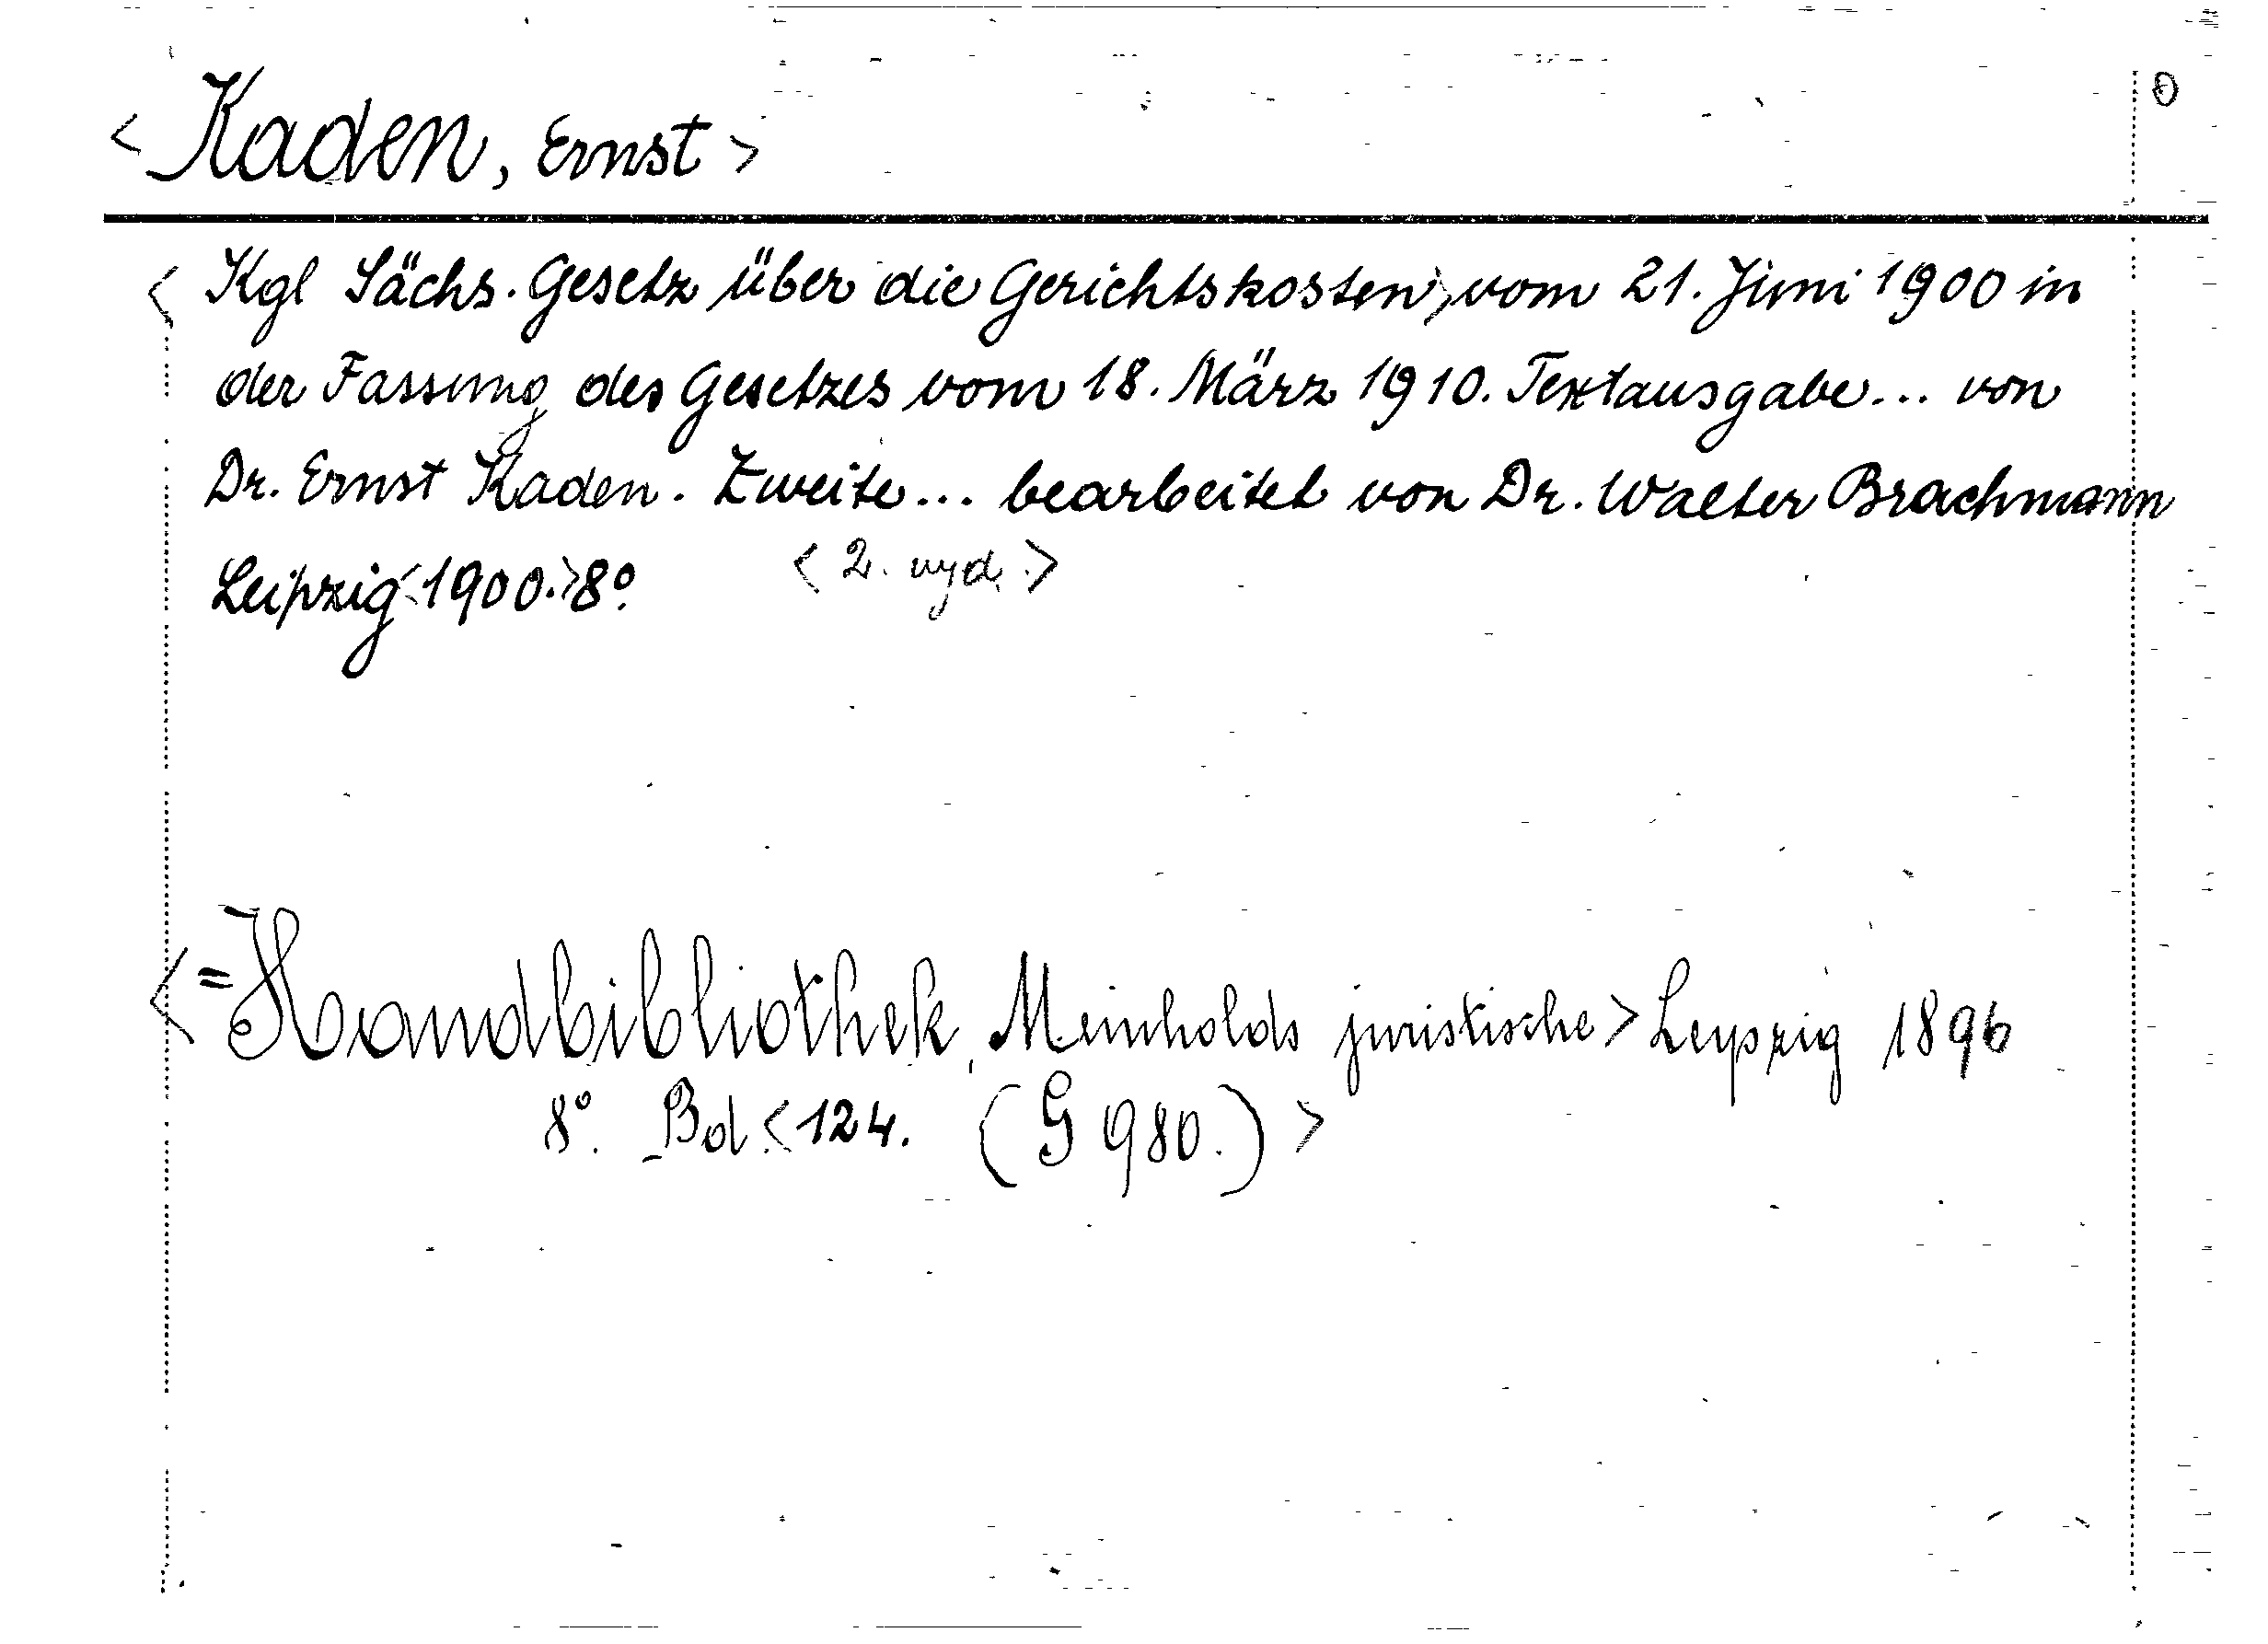 0
< Kaden, Ernst >
< Kgl Sächs. Gesetz über die Gerichtskosten > vom 21. Juni 1900 in
der Fassung des Gesetzes vom 18. März 1910. Textausgabe... von
Dr. Ernst Kaden. Zweite... bearbeitet von Dr. Walter Brachmann
Leipzig < 1900. > 8°. < 2. vyd. >
< = Handbibliothek, Meinholds juristische > Leipzig 1896
8°. Bd. < 124. (G 980.) >